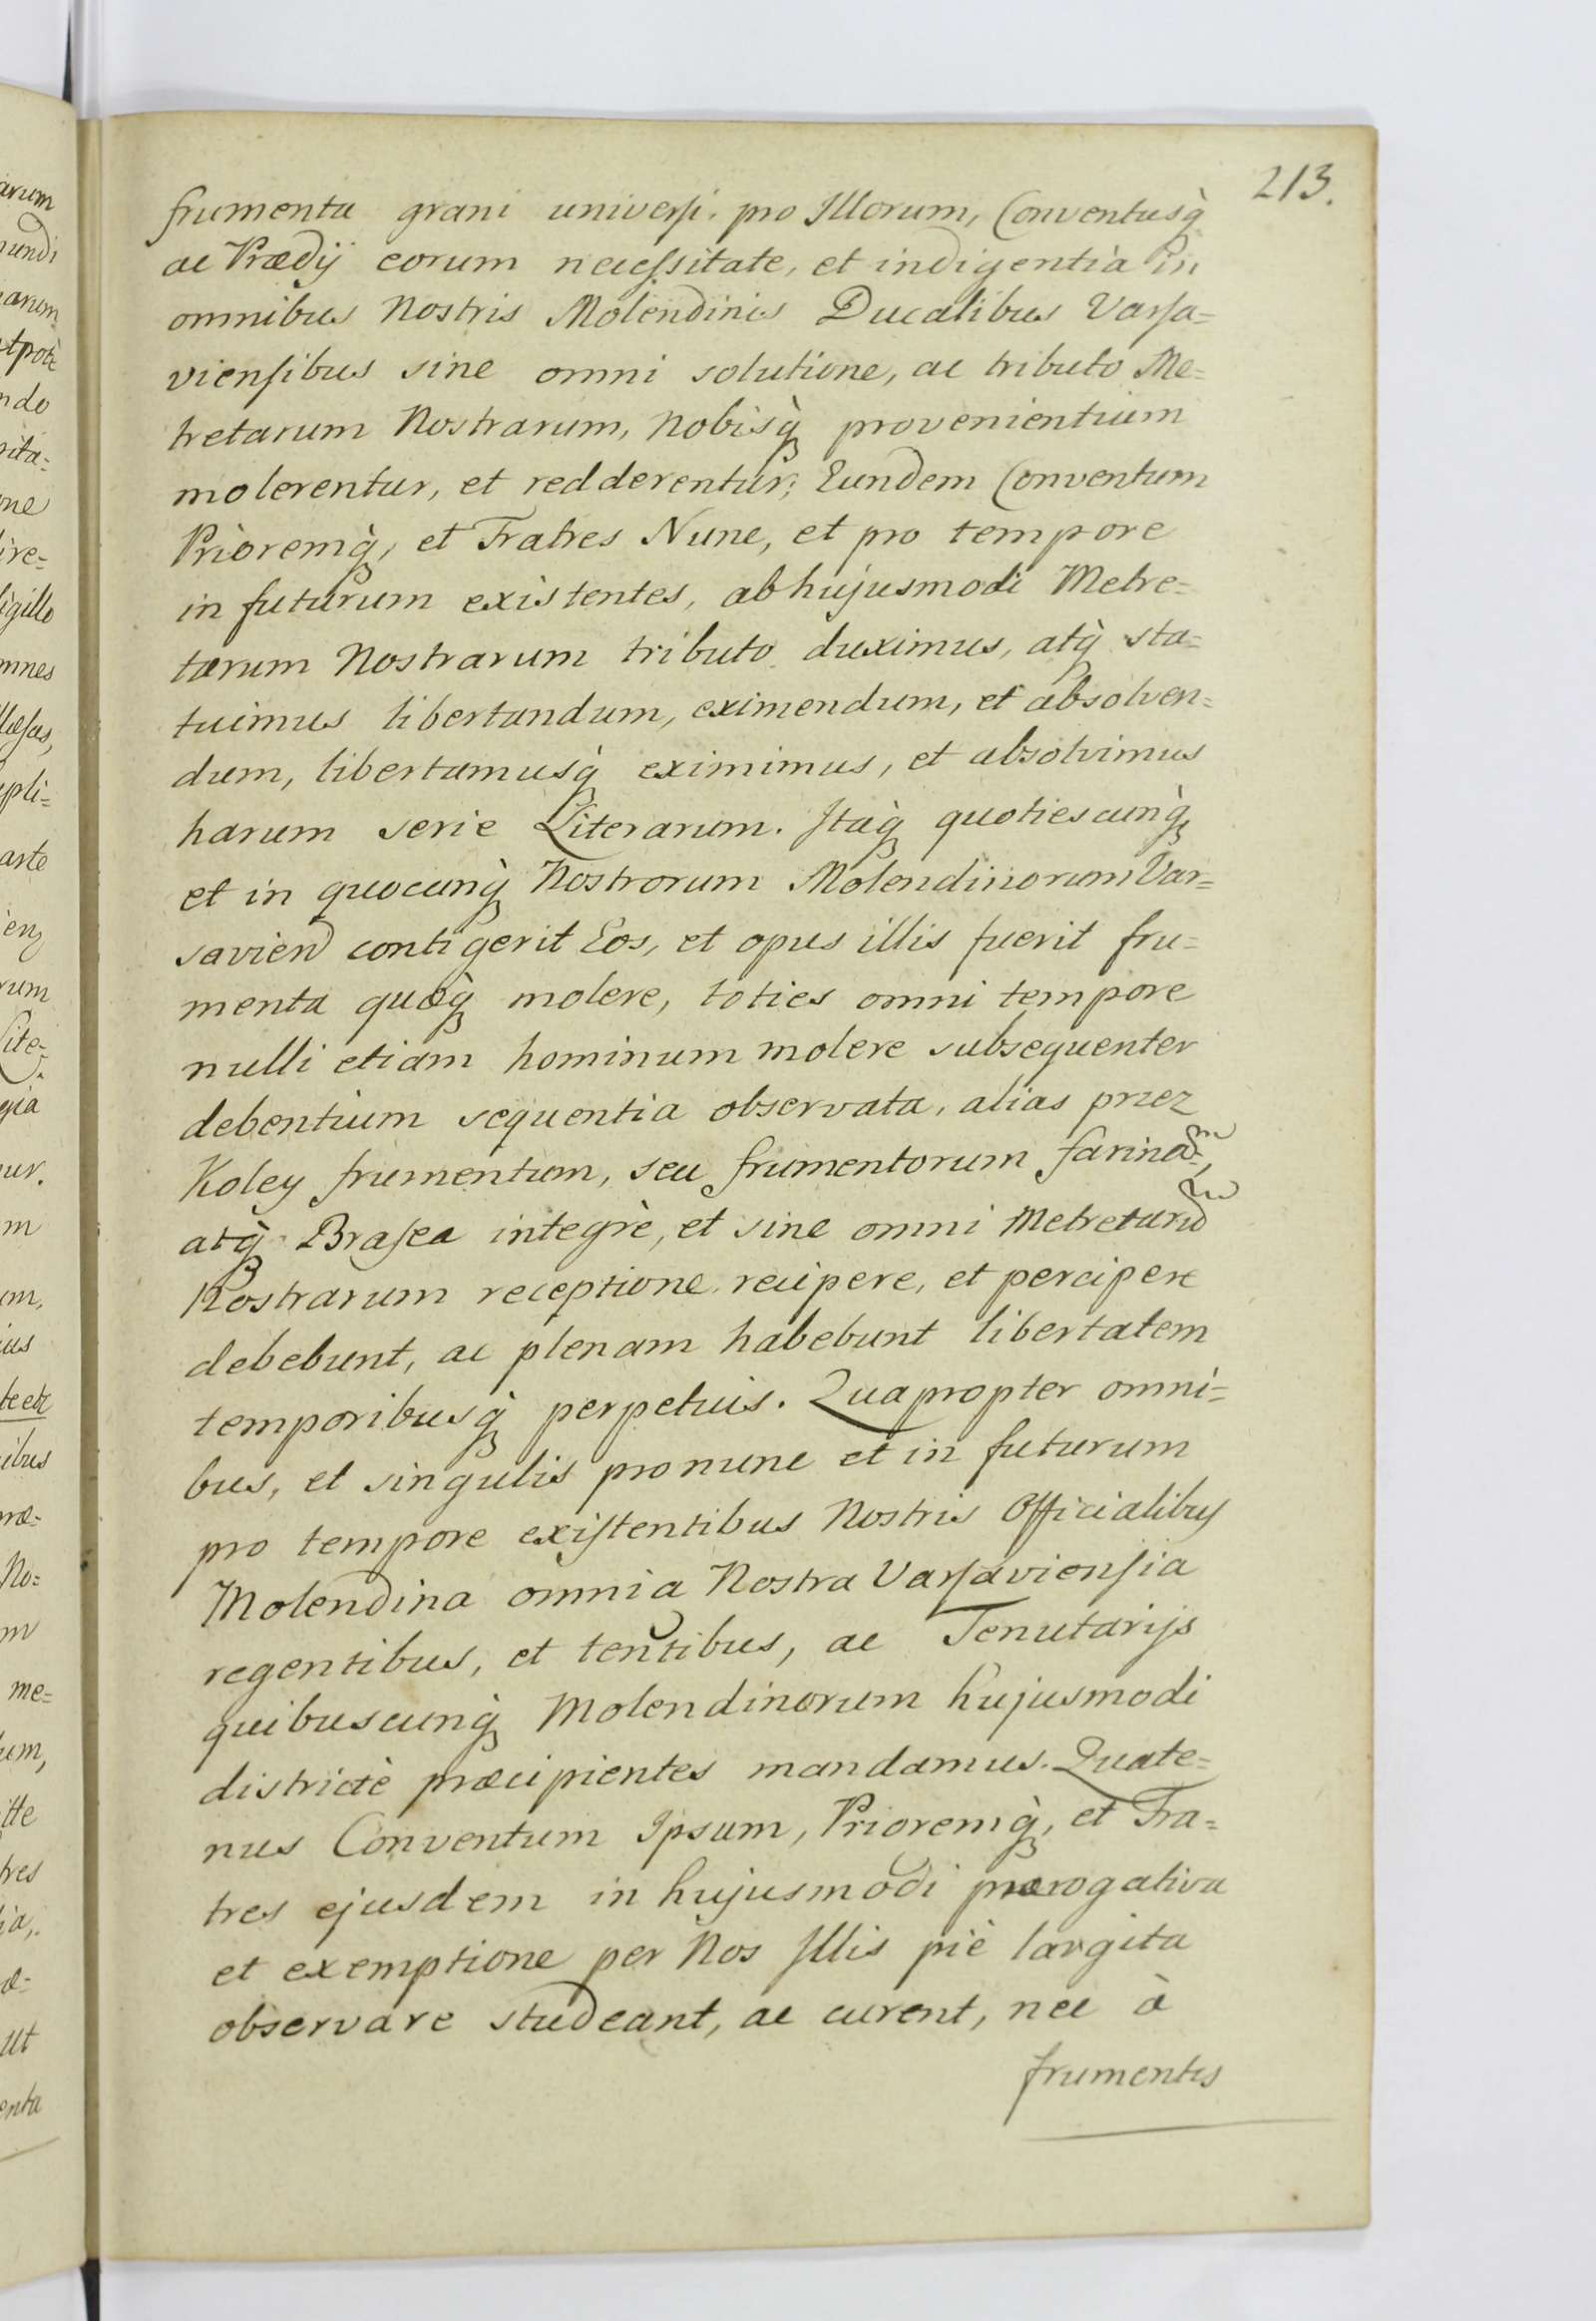 213.
frumenta grani universi pro Illorum, Conventusq̀
ac Prædÿ eorum necessitate, et indigentià in
omnibus Nostris Molendinis Ducalibus Varsa=
viensibus sine omni solutione, ac tributo Me=
tretarum Nostrarum, Nobisq̀ provenientium
molerentur, et redderentur; Eundem Conventum
Prioremq̀, et Fratres Nunc, et pro tempore
in futurum existentes, ab hujusmodi Metre=
tarum Nostrarum tributo duximus, atq̀ sta=
tuimus libertandum, eximendum, et absolven=
dum, libertamusq̀ eximimus, et absolvimus
harum serie Literarum. Itaq̀ quotiescunq̀
et in quocunq̀ Nostrorum Molendinorum Var=
savien contigerit Eos, et opus illis fuerit fru=
menta quoq̀ molere, toties omni tempore
nulli etiam hominum molere subsequenter
debentium sequentia observata, alias przez
Koley frumentum, seu frumentorum farinam,
atq̀ Brasea integrè, et sine omni Metretarum
Nostrarum receptione recipere, et percipere
debebunt, ac plenam habebunt libertatem
temporibusq̀ perpetuis. Quapropter omni=
bus, et singulis pro nunc et in futurum
pro tempore existentibus Nostris Officialibus
Molendina omnia Nostra Varsaviensia
regentibus, et tentibus, ac Tenutarijs
quibuscunq̀ Molendinorum hujusmodi
districtè præcipientes mandamus. Quate=
nus Conventum Ipsum, Prioremq̀, et Fra=
tres ejusdem in hujusmodi prærogativa
et exemptione per Nos Illis piè largita
observare studeant, ac curent, nec à
frumentis